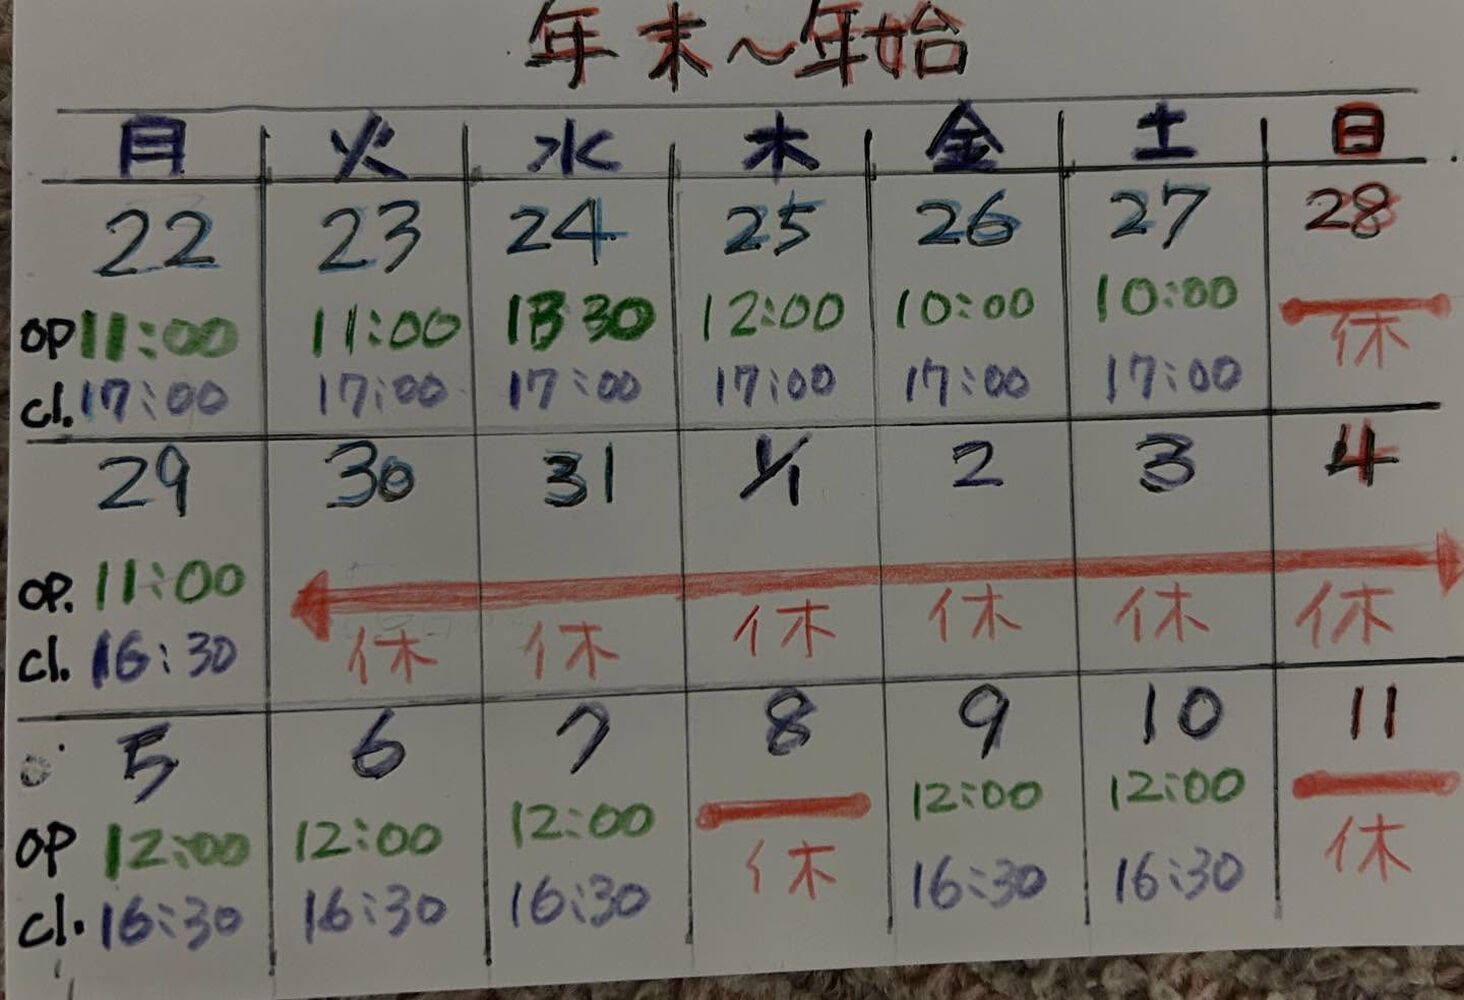 年末～年始
月 火 水 木 金 土 日
22 23 24 25 26 27 28
op 11:00 11:00 13 30 12:00 10:00 10:00 休
cl. 17:00 17:00 17:00 17:00 17:00 17:00
29 30 31 1/1 2 3 4
op. 11:00 休 休 休 休 休 休
cl. 16:30
5 6 7 8 9 10 11
op 12:00 12:00 12:00 休 12:00 12:00 休
cl. 16:30 16:30 16:30 16:30 16:30